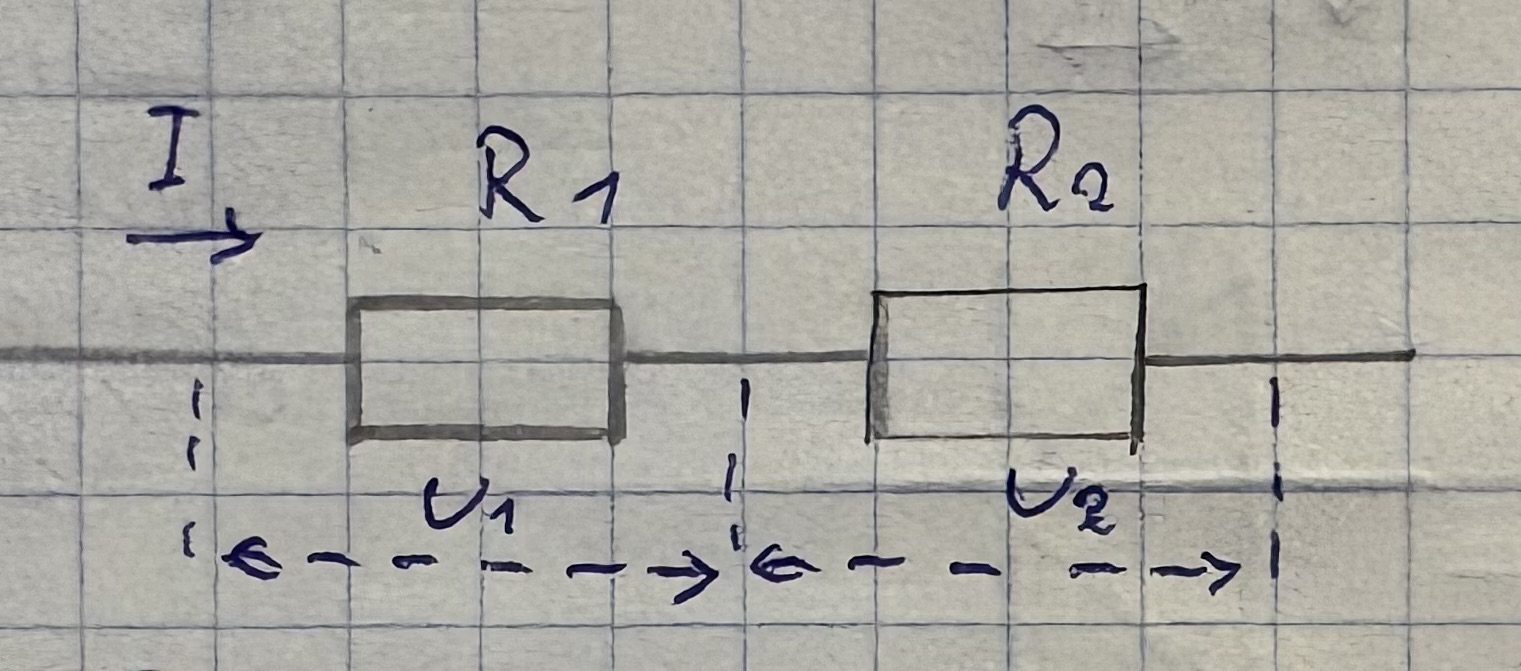 I R1 R2
U1 U2